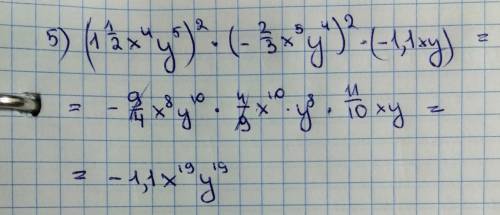 5) (1 1/2 x⁴y⁵)² · (- 2/3 x⁵y⁴)² · (-1,1xy) =
= - 9/4 x⁸y¹⁰ · 4/9 x¹⁰ · y⁸ · 11/10 xy =
= -1,1x¹⁹y¹⁹